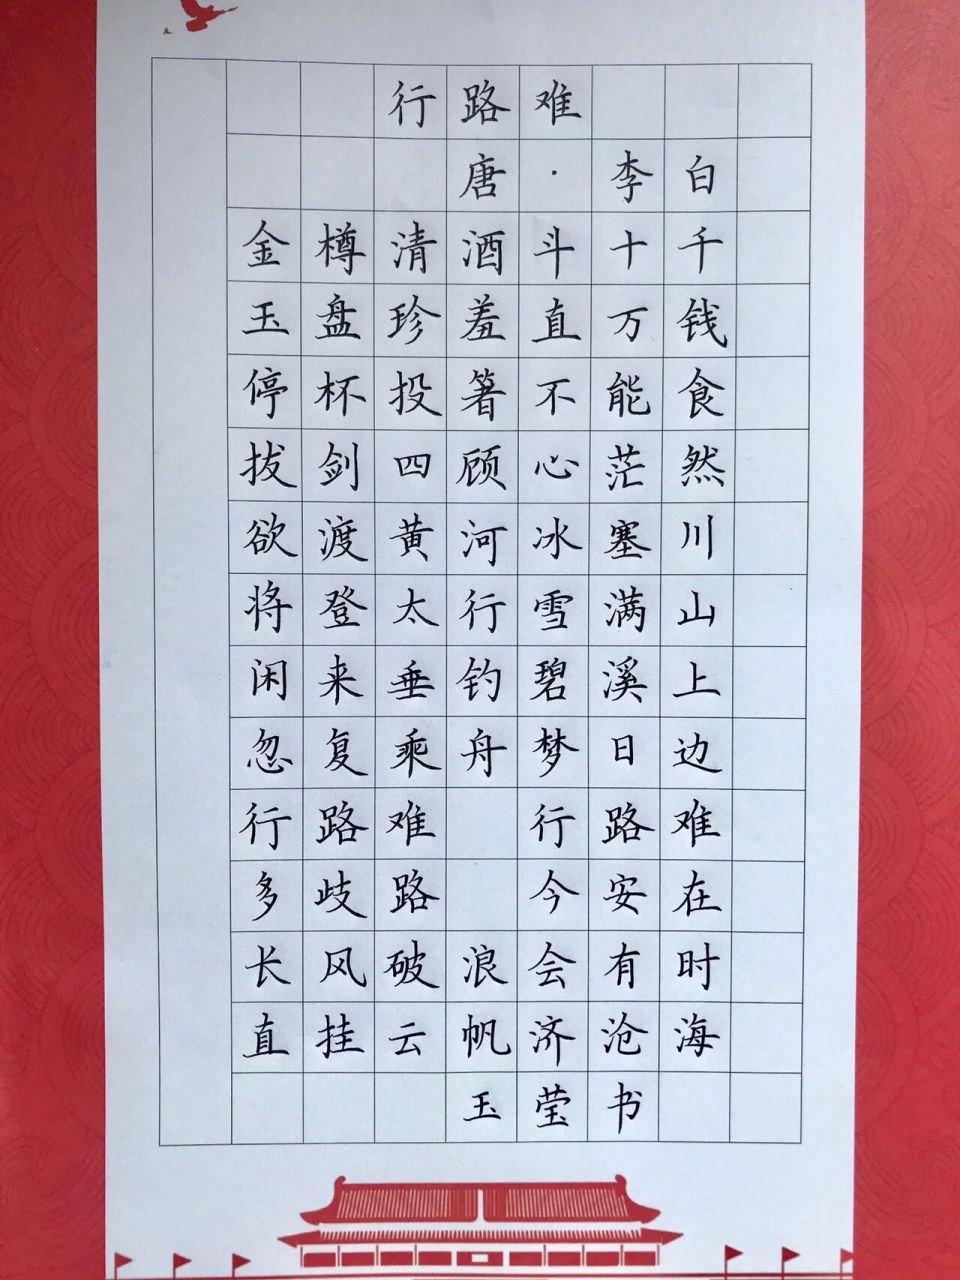 行路难
唐·李白
金樽清酒斗十千
玉盘珍羞直万钱
停杯投箸不能食
拔剑四顾心茫然
欲渡黄河冰塞川
将登太行雪满山
闲来垂钓碧溪上
忽复乘舟梦日边
行路难 行路难
多歧路 今安在
长风破浪会有时
直挂云帆济沧海
玉莹书